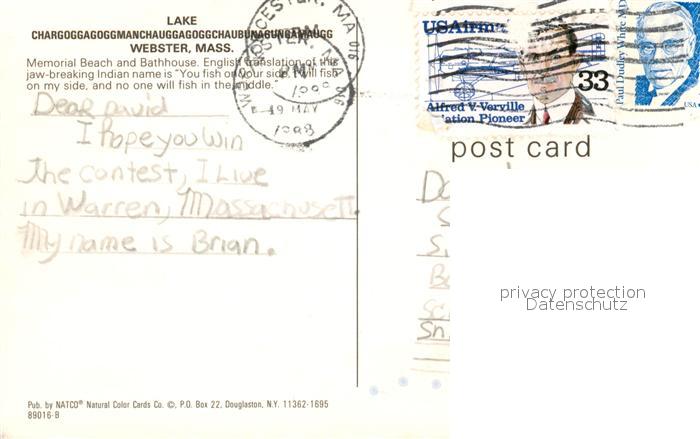 LAKE
CHARGOGGAGOGGMANCHAUGGAGOGGCHAUBUNAGUNGAMAUGG
WEBSTER, MASS.
Memorial Beach and Bathhouse. English translation of this
jaw-breaking Indian name is "You fish on your side, I will fish
on my side, and no one will fish in the middle."
WORCESTER, MA 016
PM
19 MAY
1998
USAirmail
33
Alfred V. Verville
Aviation Pioneer
Paul Dudley White MD
USA
post card
Dear David
I hope you win
the contest, I Live
in Warren, Massachusett.
My name is Brian.
privacy protection
Datenschutz
Pub. by NATCO® Natural Color Cards Co. ©, P.O. Box 22, Douglaston, N.Y. 11362-1695
89016-B